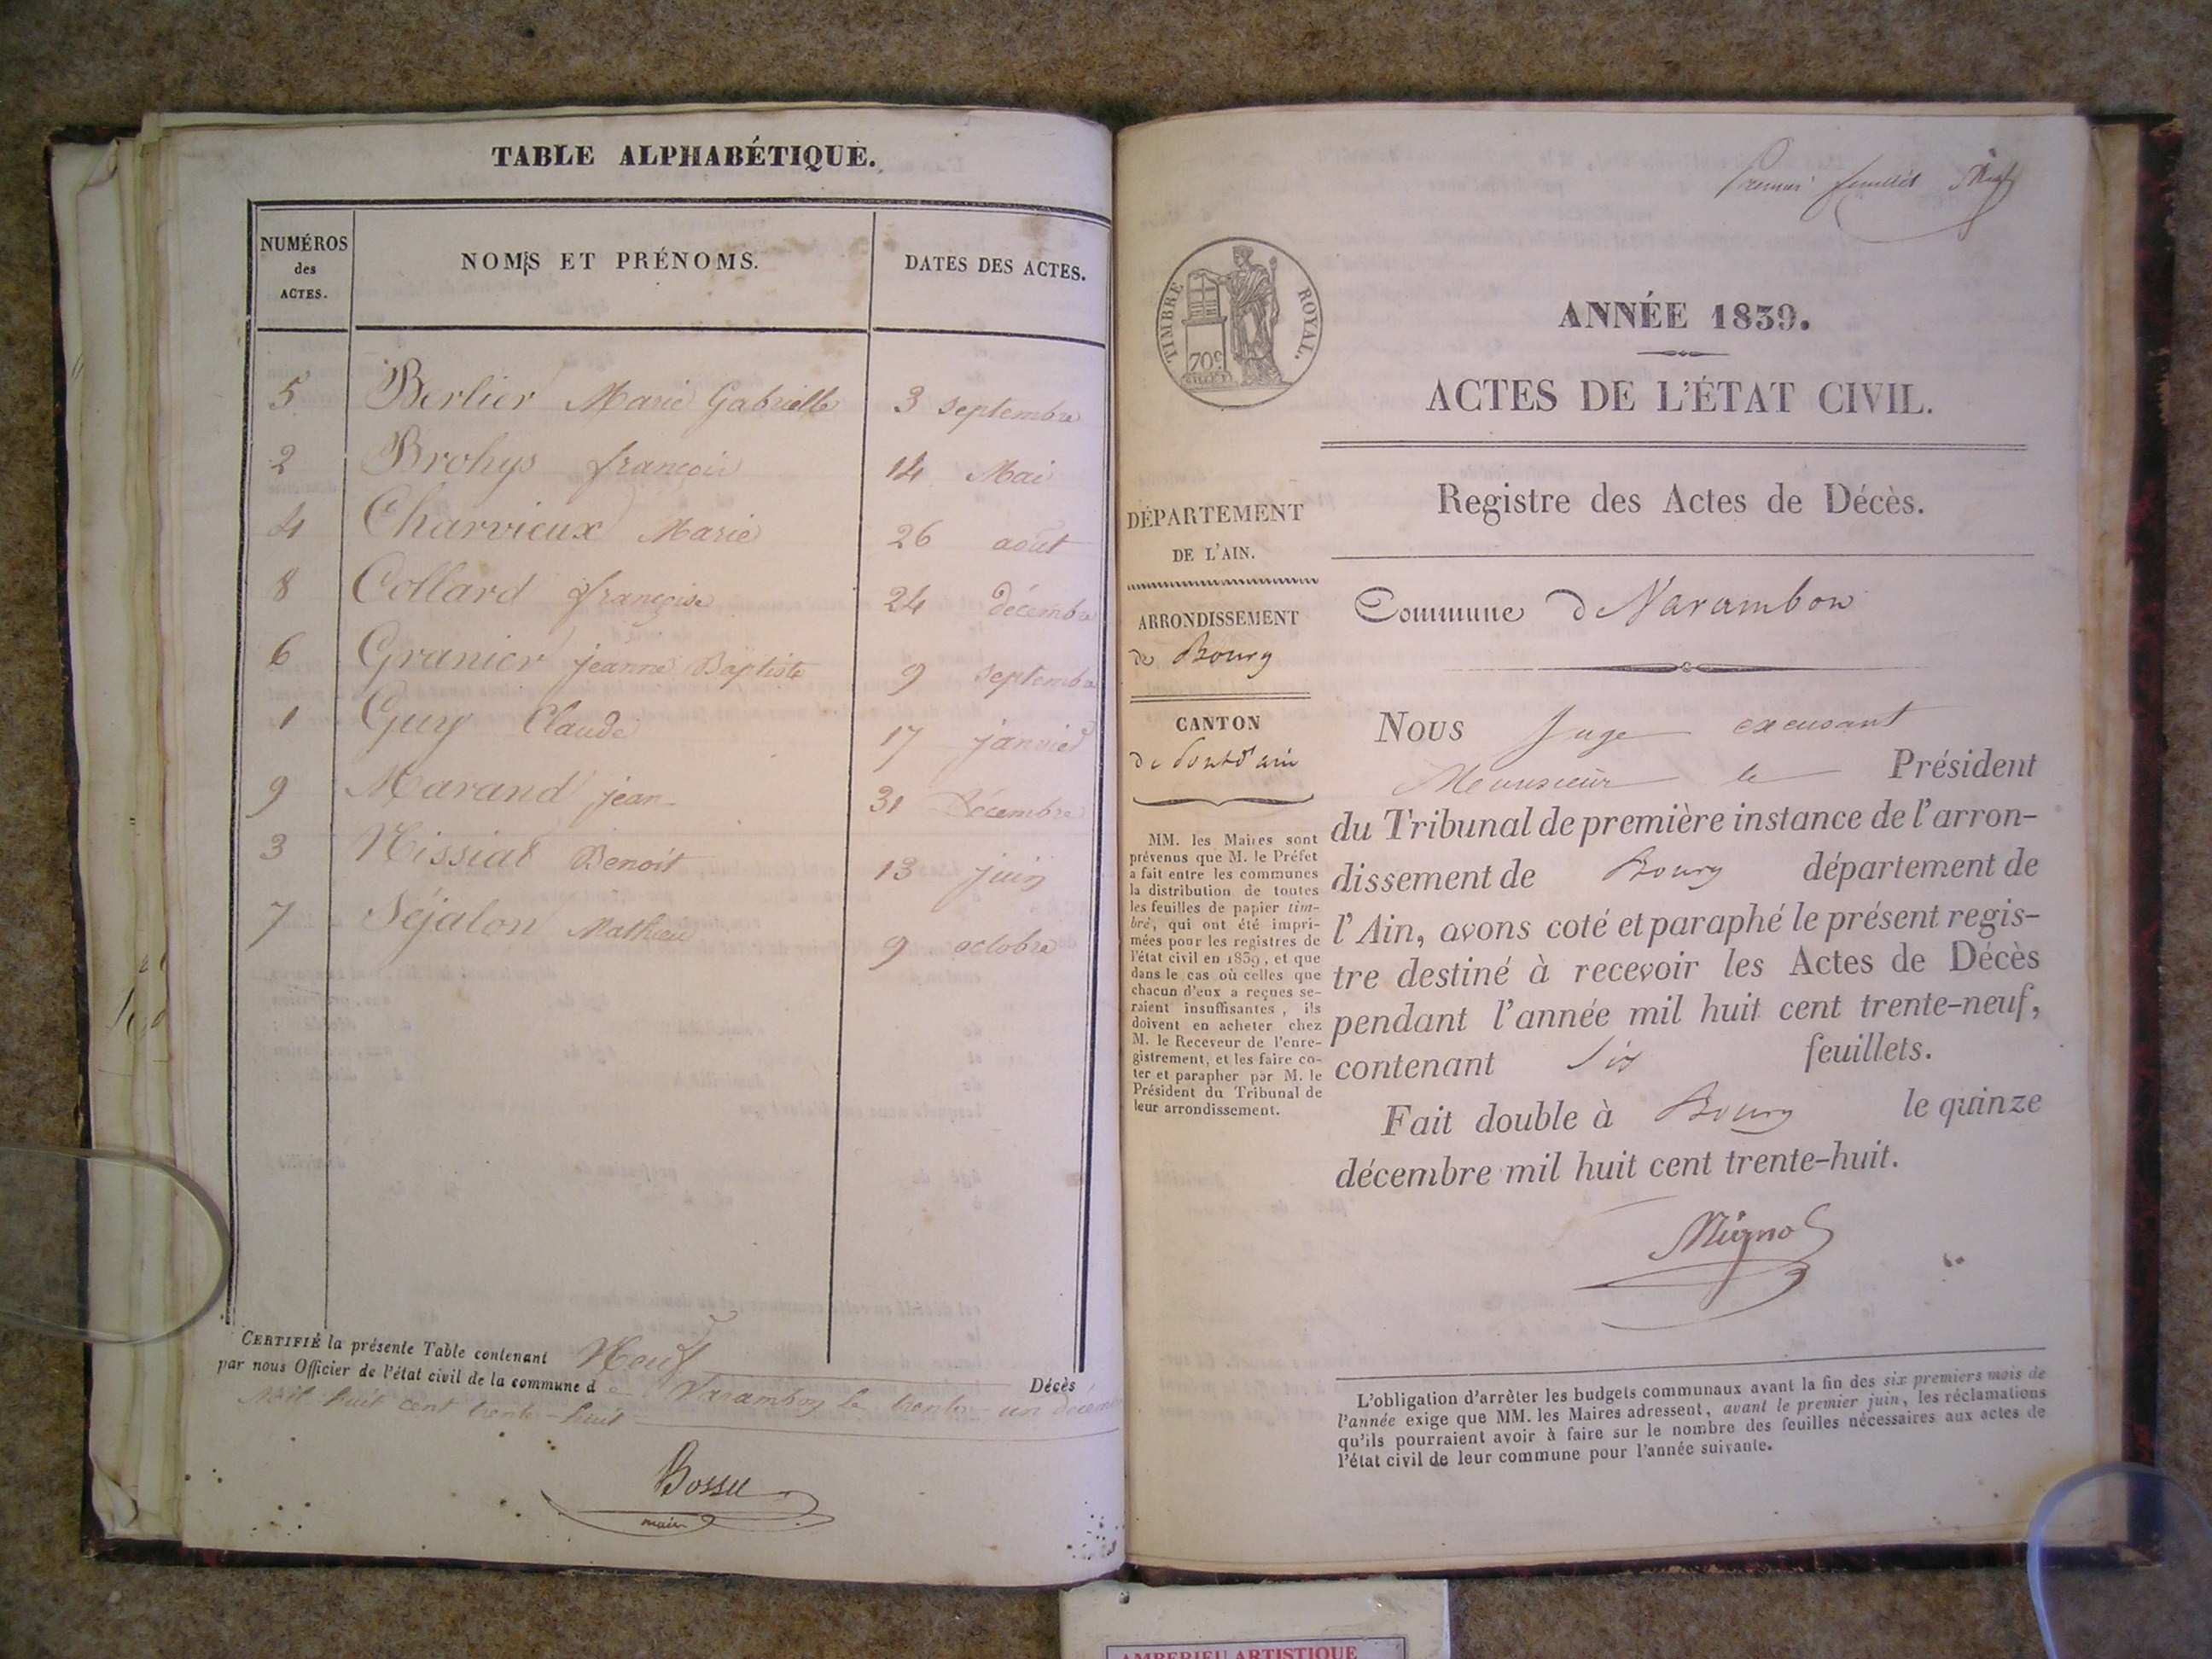 TABLE ALPHABÉTIQUE.
NUMÉROS des ACTES. NOMS ET PRÉNOMS. DATES DES ACTES.
5 Berlier Marie Gabrielle 3 septembre
2 Brohys françois 14 Mai
4 Charvieux Marie 26 août
8 Collard françoise 24 décembre
6 Granier jeanne Baptiste 9 septembre
1 Guy Claude 17 janvier
9 Marand jean 31 Décembre
3 Nissiat Benoit 13 juin
7 Séjalon Mathieu 9 octobre
CERTIFIÉ la présente Table contenant Neuf Décès
par nous Officier de l'état civil de la commune de Varambon le trente un décembre
Mil huit cent trente-huit
Bossu
maire
Premier feuillet
TIMBRE ROYAL.
70c
ANNÉE 1839.
ACTES DE L'ÉTAT CIVIL.
Registre des Actes de Décès.
DÉPARTEMENT
DE L'AIN.
ARRONDISSEMENT
de Bourg
CANTON
de Pont d'ain
MM. les Maires sont
prévenus que M. le Préfet
a fait entre les communes
la distribution de toutes
les feuilles de papier tim-
bré, qui ont été impri-
mées pour les registres de
l'état civil en 1839, et que
dans le cas où celles que
chacun d'eux a reçues se-
raient insuffisantes, ils
doivent en acheter chez
M. le Receveur de l'enre-
gistrement, et les faire co-
ter et parapher par M. le
Président du Tribunal de
leur arrondissement.
Commune de Varambon
Nous Juge excusant
Monsieur le Président
du Tribunal de première instance de l'arron-
dissement de Bourg département de
l'Ain, avons coté et paraphé le présent regis-
tre destiné à recevoir les Actes de Décès
pendant l'année mil huit cent trente-neuf,
contenant six feuillets.
Fait double à Bourg le quinze
décembre mil huit cent trente-huit.
Mignot
L'obligation d'arrêter les budgets communaux avant la fin des six premiers mois de
l'année exige que MM. les Maires adressent, avant le premier juin, les réclamations
qu'ils pourraient avoir à faire sur le nombre des feuilles nécessaires aux actes de
l'état civil de leur commune pour l'année suivante.
AMBERIEU ARTISTIQUE